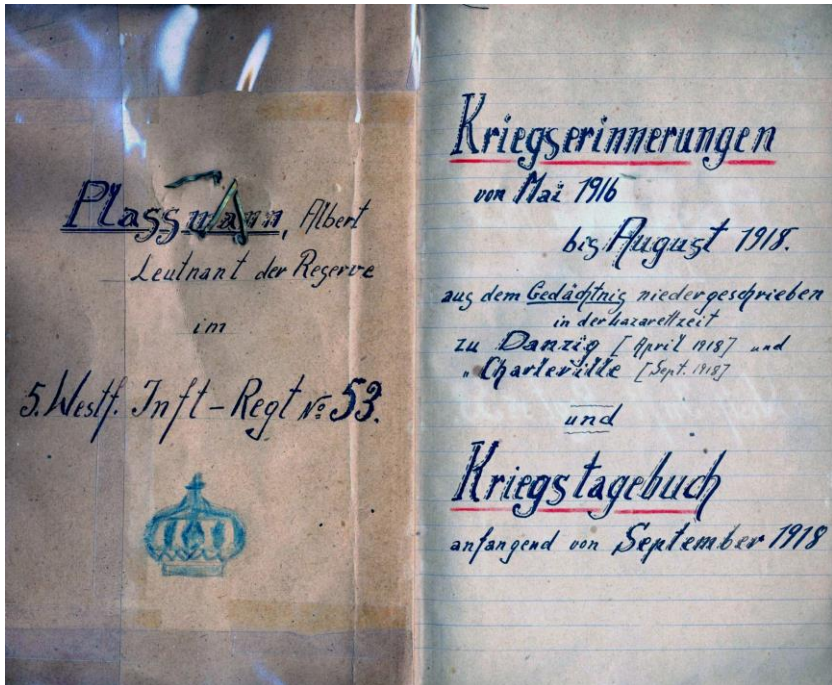 Plassmann, Albert
Leutnant der Reserve
im
5. Westf. Inft - Regt № 53.
Kriegserinnerungen
von Mai 1916
bis August 1918.
aus dem Gedächtnis niedergeschrieben
in der Lazarettzeit
zu Danzig [April 1918] und
" Charleville [Sept. 1918]
und
Kriegstagebuch
anfangend von September 1918